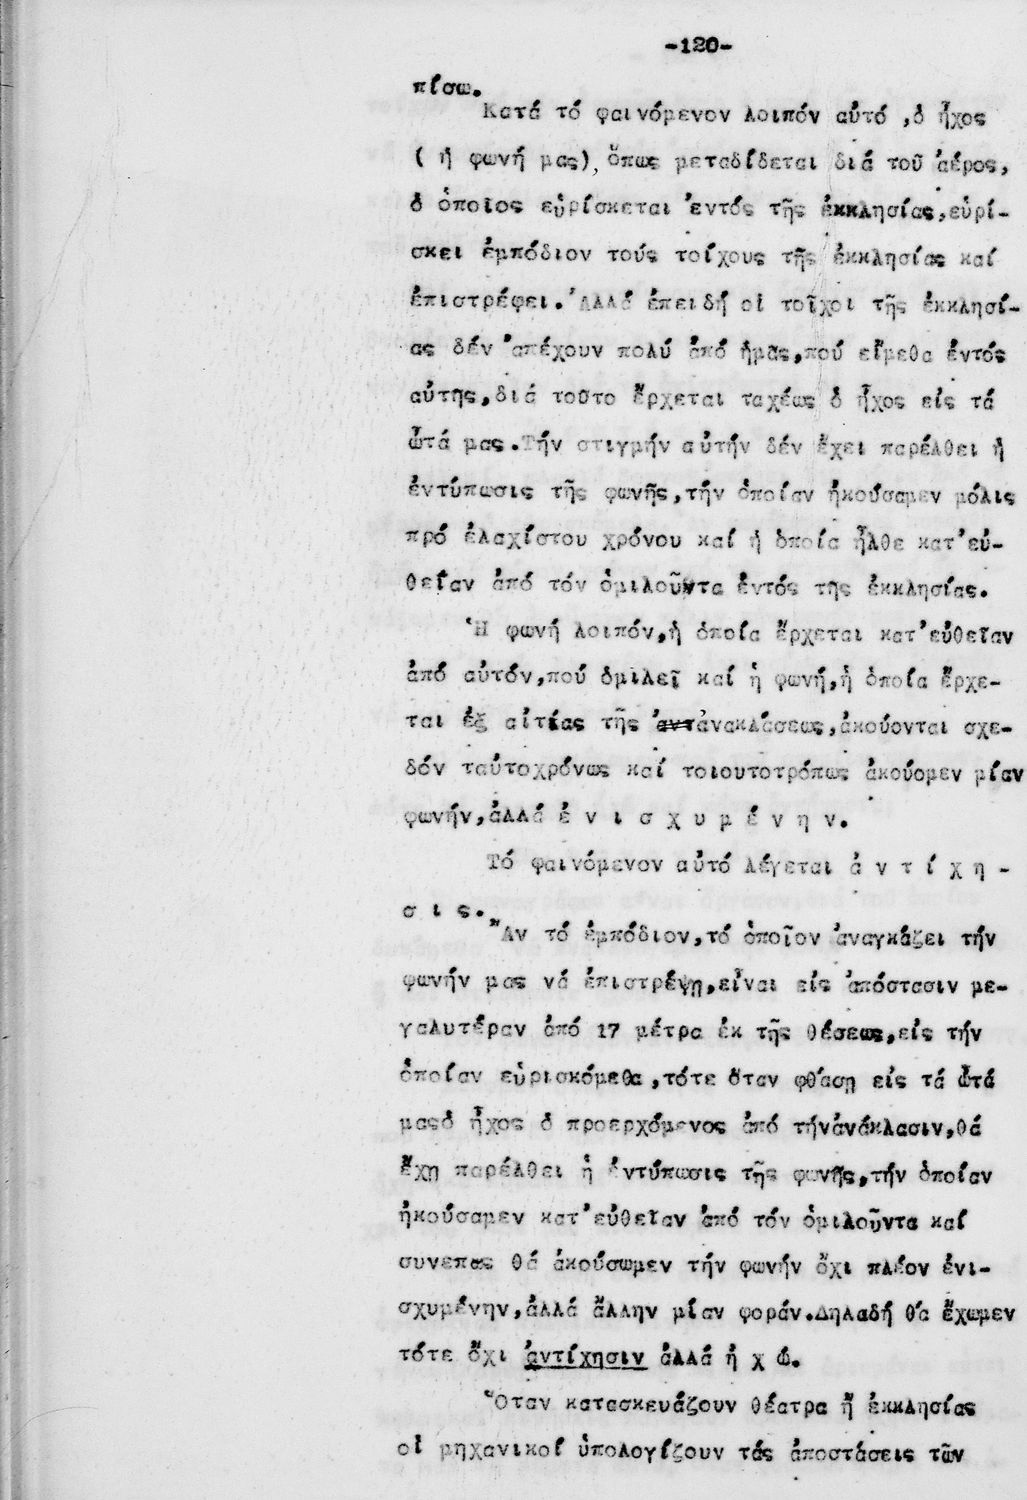 -120-
πίσω.
Κατά τό φαινόμενον λοιπόν αὐτό ,ὁ ἦχος
( ἡ φωνή μας), ὅπως μεταδίδεται διά τοῦ ἀέρος,
ὁ ὁποῖος εὑρίσκεται ἐντός τῆς ἐκκλησίας,εὑρί-
σκει ἐμπόδιον τούς τοίχους τῆς ἐκκλησίας καί
ἐπιστρέφει.Ἀλλά ἐπειδή οἱ τοῖχοι τῆς ἐκκλησί-
ας δέν ἀπέχουν πολύ ἀπό ἡμᾶς,πού εἴμεθα ἐντός
αὐτῆς,διά τοῦτο ἔρχεται ταχέως ὁ ἦχος εἰς τά
ὦτά μας.Τήν στιγμήν αὐτήν δέν ἔχει παρέλθει ἡ
ἐντύπωσις τῆς φωνῆς,τήν ὁποίαν ἠκούσαμεν μόλις
πρό ἐλαχίστου χρόνου καί ἡ ὁποία ἦλθε κατ'εὐ-
θεῖαν ἀπό τόν ὁμιλοῦντα ἐντός τῆς ἐκκλησίας.
Ἡ φωνή λοιπόν,ἡ ὁποία ἔρχεται κατ'εὐθεῖαν
ἀπό αὐτόν,πού ὁμιλεῖ καί ἡ φωνή,ἡ ὁποία ἔρχε-
ται ἐξ αἰτίας τῆς ἀνακλάσεως,ἀκούονται σχε-
δόν ταὐτοχρόνως καί τοιουτοτρόπως ἀκούομεν μίαν
φωνήν,ἀλλά ἐ ν ι σ χ υ μ έ ν η ν.
Τό φαινόμενον αὐτό λέγεται ἀ ν τ ί χ η -
σ ι ς.
Ἄν τό ἐμπόδιον,τό ὁποῖον ἀναγκάζει τήν
φωνήν μας νά ἐπιστρέψῃ,εἶναι εἰς ἀπόστασιν με-
γαλυτέραν ἀπό 17 μέτρα ἐκ τῆς θέσεως,εἰς τήν
ὁποίαν εὑρισκόμεθα,τότε ὅταν φθάσῃ εἰς τά ὦτά
μαςὁ ἦχος ὁ προερχόμενος ἀπό τήνἀνάκλασιν,θά
ἔχῃ παρέλθει ἡ ἐντύπωσις τῆς φωνῆς,τήν ὁποίαν
ἠκούσαμεν κατ'εὐθεῖαν ἀπό τόν ὁμιλοῦντα καί
συνεπῶς θά ἀκούσωμεν τήν φωνήν ὄχι πλέον ἐνι-
σχυμένην,ἀλλά ἄλλην μίαν φοράν.Δηλαδή θά ἔχωμεν
τότε ὄχι ἀντίχησιν ἀλλά ἠ χ ώ.
Ὅταν κατασκευάζουν θέατρα ἤ ἐκκλησίας
οἱ μηχανικοί ὑπολογίζουν τάς ἀποστάσεις τῶν